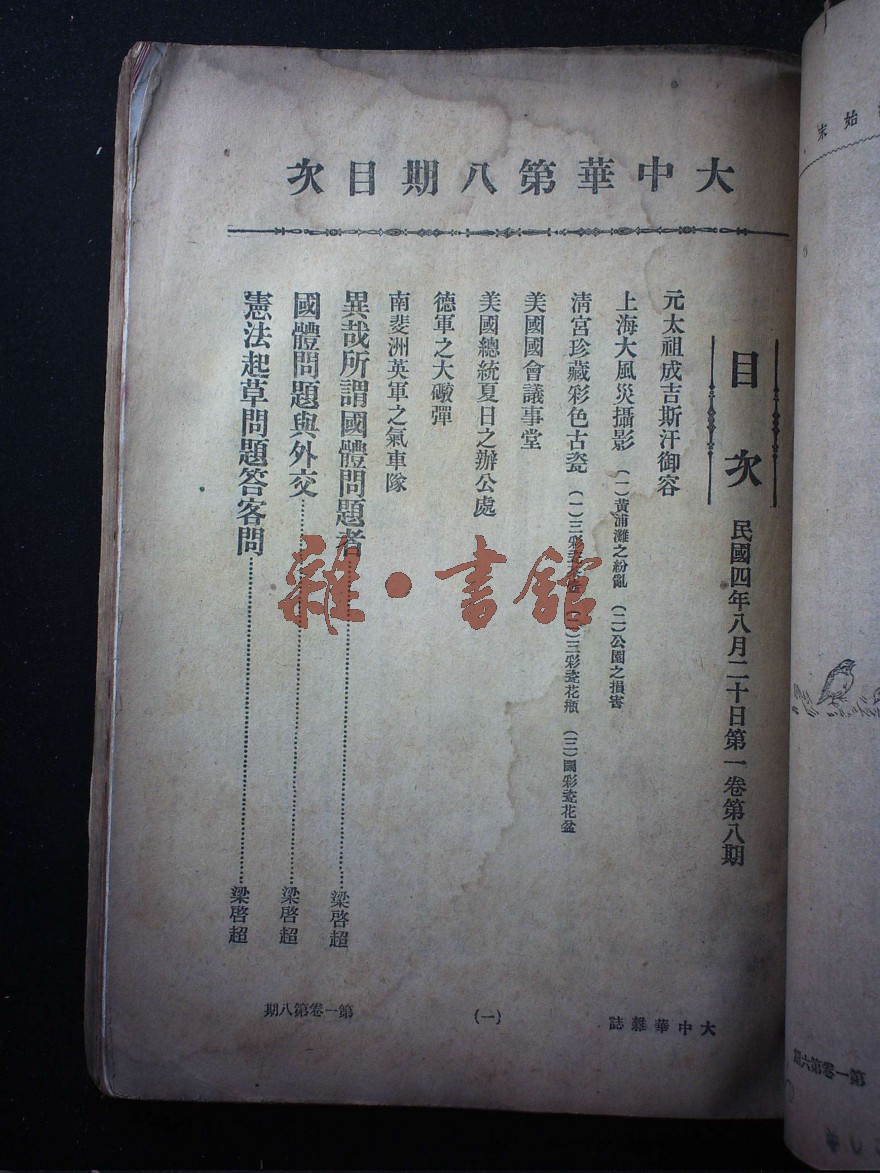 大中華第八期目次
目次　民國四年八月二十日第一卷第八期
元太祖成吉斯汗御容
上海大風災攝影（一）黃浦灘之紛亂（二）公園之損害
清宮珍藏彩色古瓷（一）三彩（二）三彩瓷花瓶（三）瓷花盆
美國國會議事堂
美國總統夏日之辦公處
德軍之大礮彈
南斐洲英軍之氣車隊
異哉所謂國體問題者……梁啓超
國體問題與外交……梁啓超
憲法起草問題答客問……梁啓超
大中華雜誌
（一）
第一卷第八期
始末
第一卷第六期
雜·書館